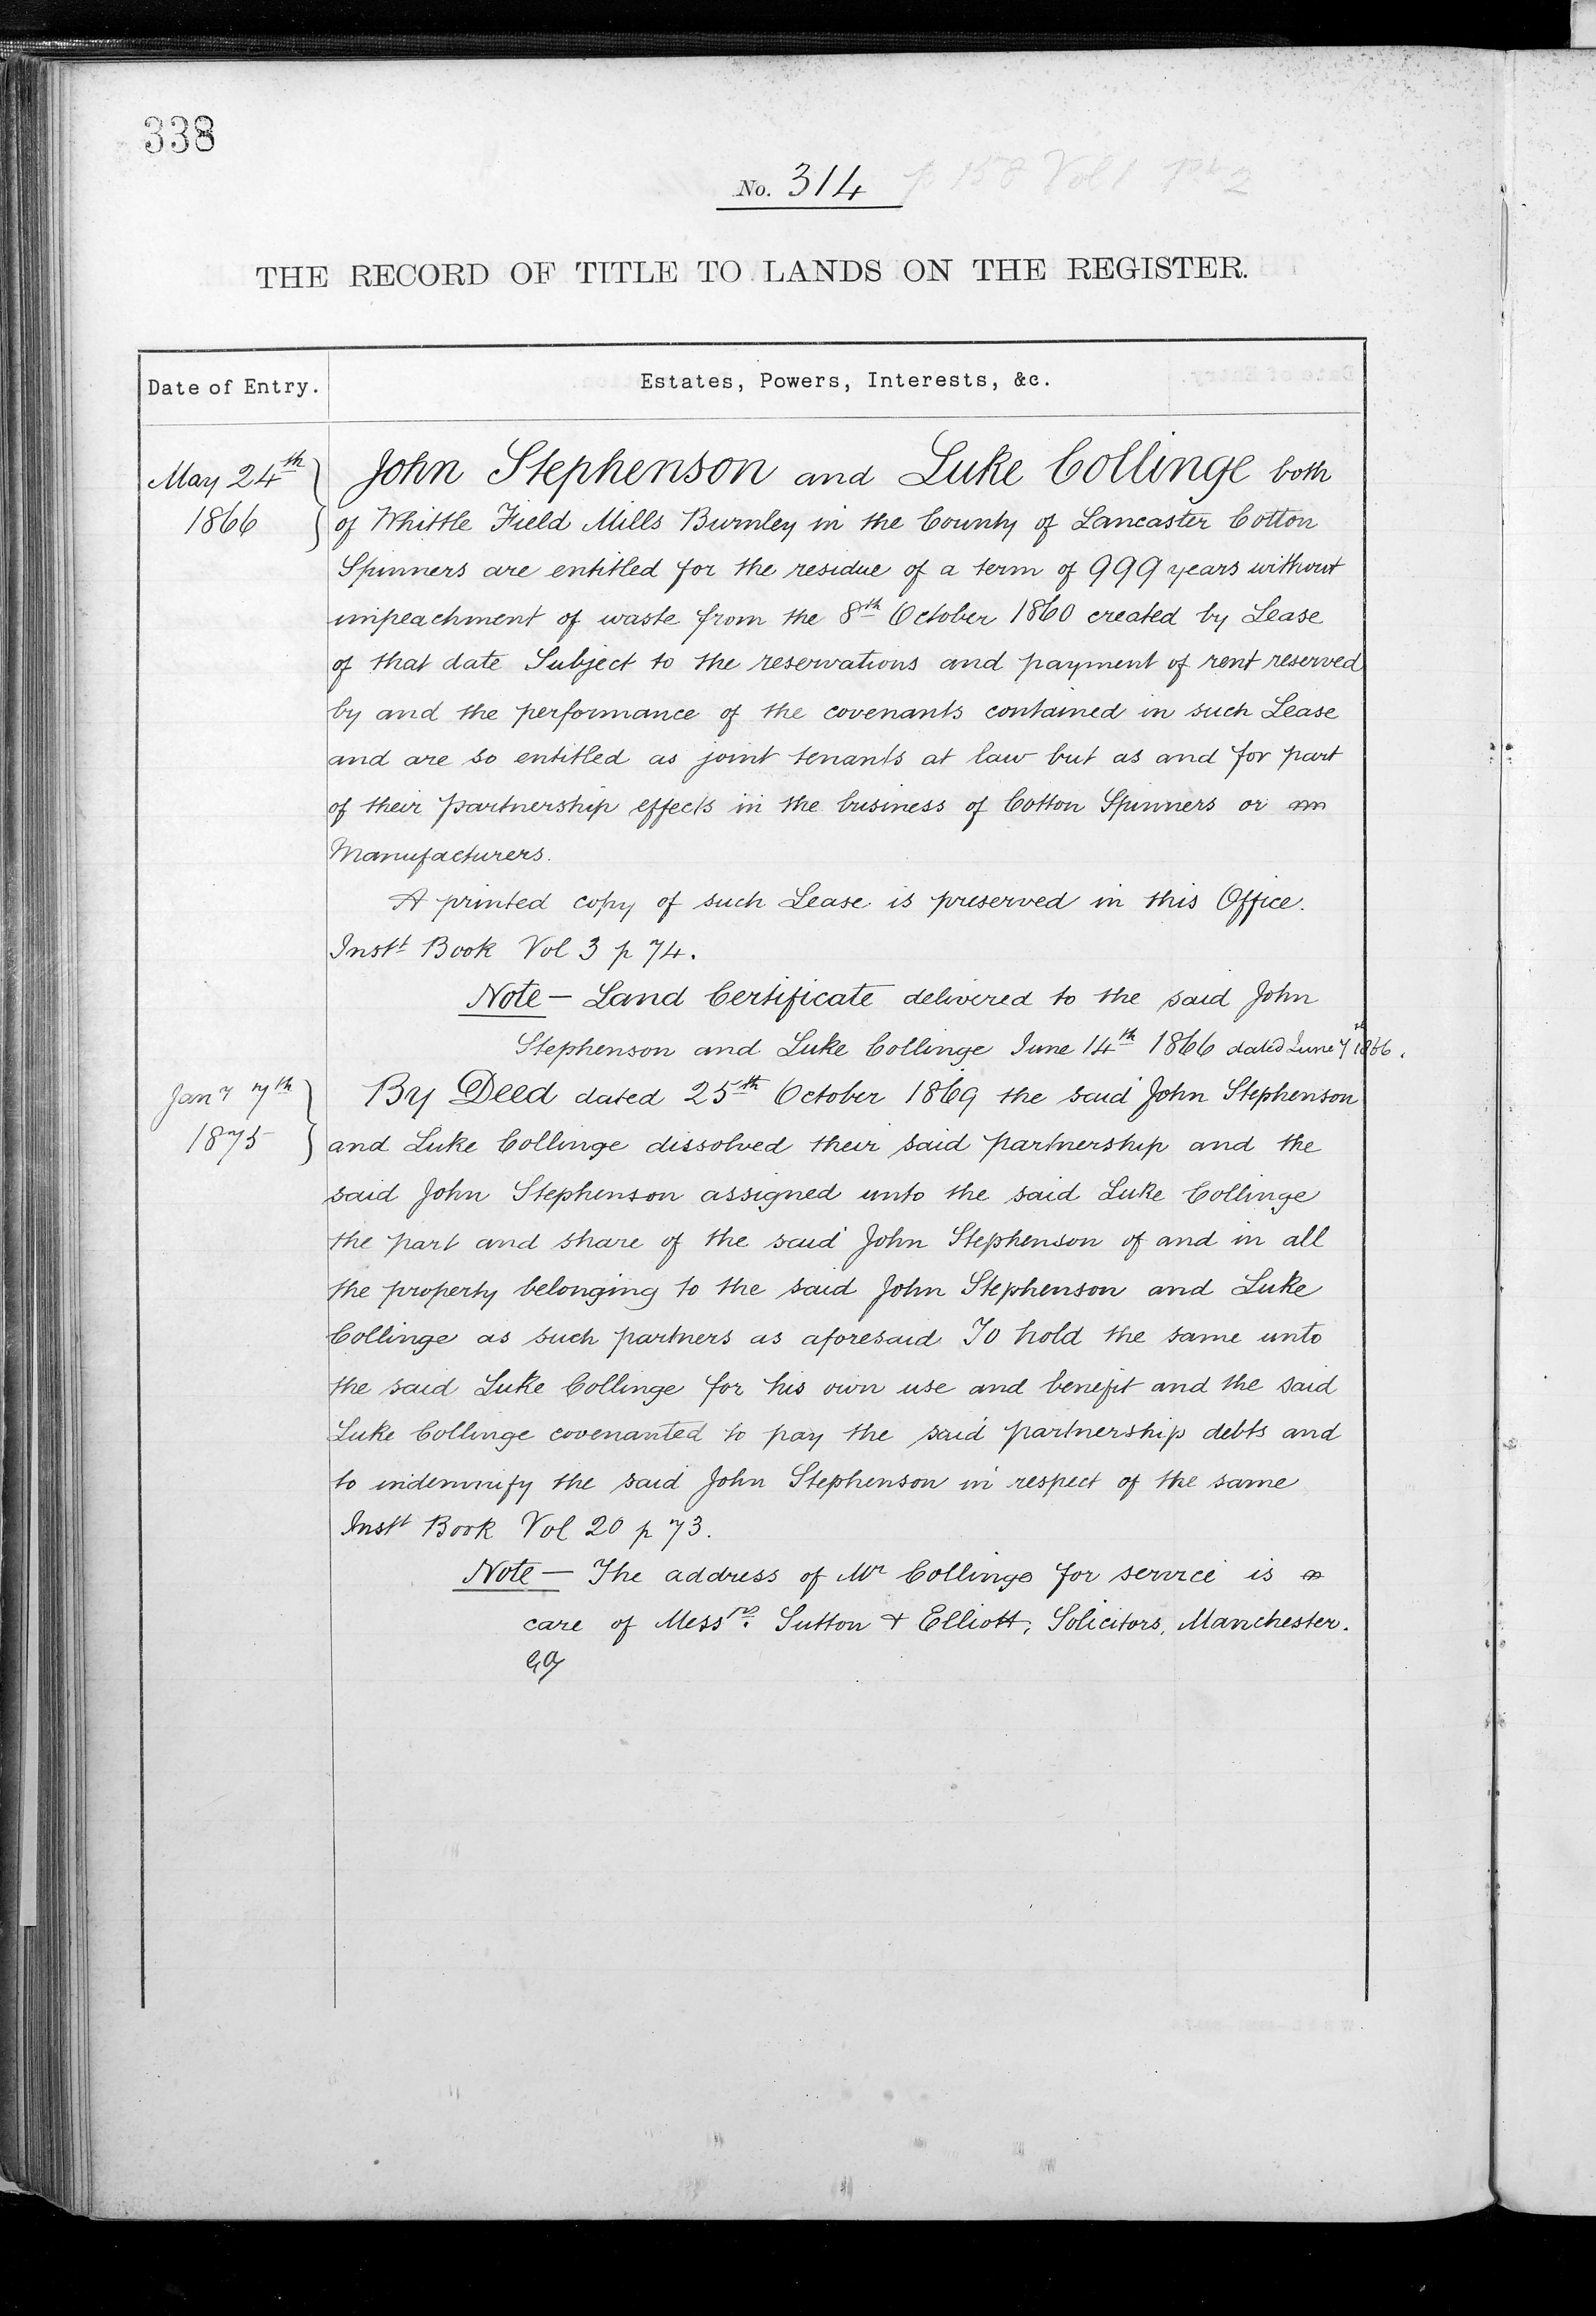 338
No. 314 p 158 Vol 1 Pt 2
THE RECORD OF TITLE TO LANDS ON THE REGISTER.
Date of Entry.
Estates, Powers, Interests, &c.
May 24th
1866
John Stephenson and Luke Collinge both
of Whittle Field Mills Burnley in the County of Lancaster Cotton
Spinners are entitled for the residue of a term of 999 years without
impeachment of waste from the 8th October 1860 created by Lease
of that date Subject to the reservations and payment of rent reserved
by and the performance of the covenants contained in such Lease
and are so entitled as joint tenants at law but as and for part
of their partnership effects in the business of Cotton Spinners or
Manufacturers.
A printed copy of such Lease is preserved in this Office.
Instt Book Vol 3 p 74.
Note – Land Certificate delivered to the said John
Stephenson and Luke Collinge June 14th 1866 dated June 7 1866.
Jany 7th
1875
By Deed dated 25th October 1869 the said John Stephenson
and Luke Collinge dissolved their said partnership and the
said John Stephenson assigned unto the said Luke Collinge
the part and share of the said John Stephenson of and in all
the property belonging to the said John Stephenson and Luke
Collinge as such partners as aforesaid To hold the same unto
the said Luke Collinge for his own use and benefit and the said
Luke Collinge covenanted to pay the said partnership debts and
to indemnify the said John Stephenson in respect of the same
Instt Book Vol 20 p 73.
Note – The address of Mr Collinge for service is
care of Messrs. Sutton & Elliott, Solicitors, Manchester.